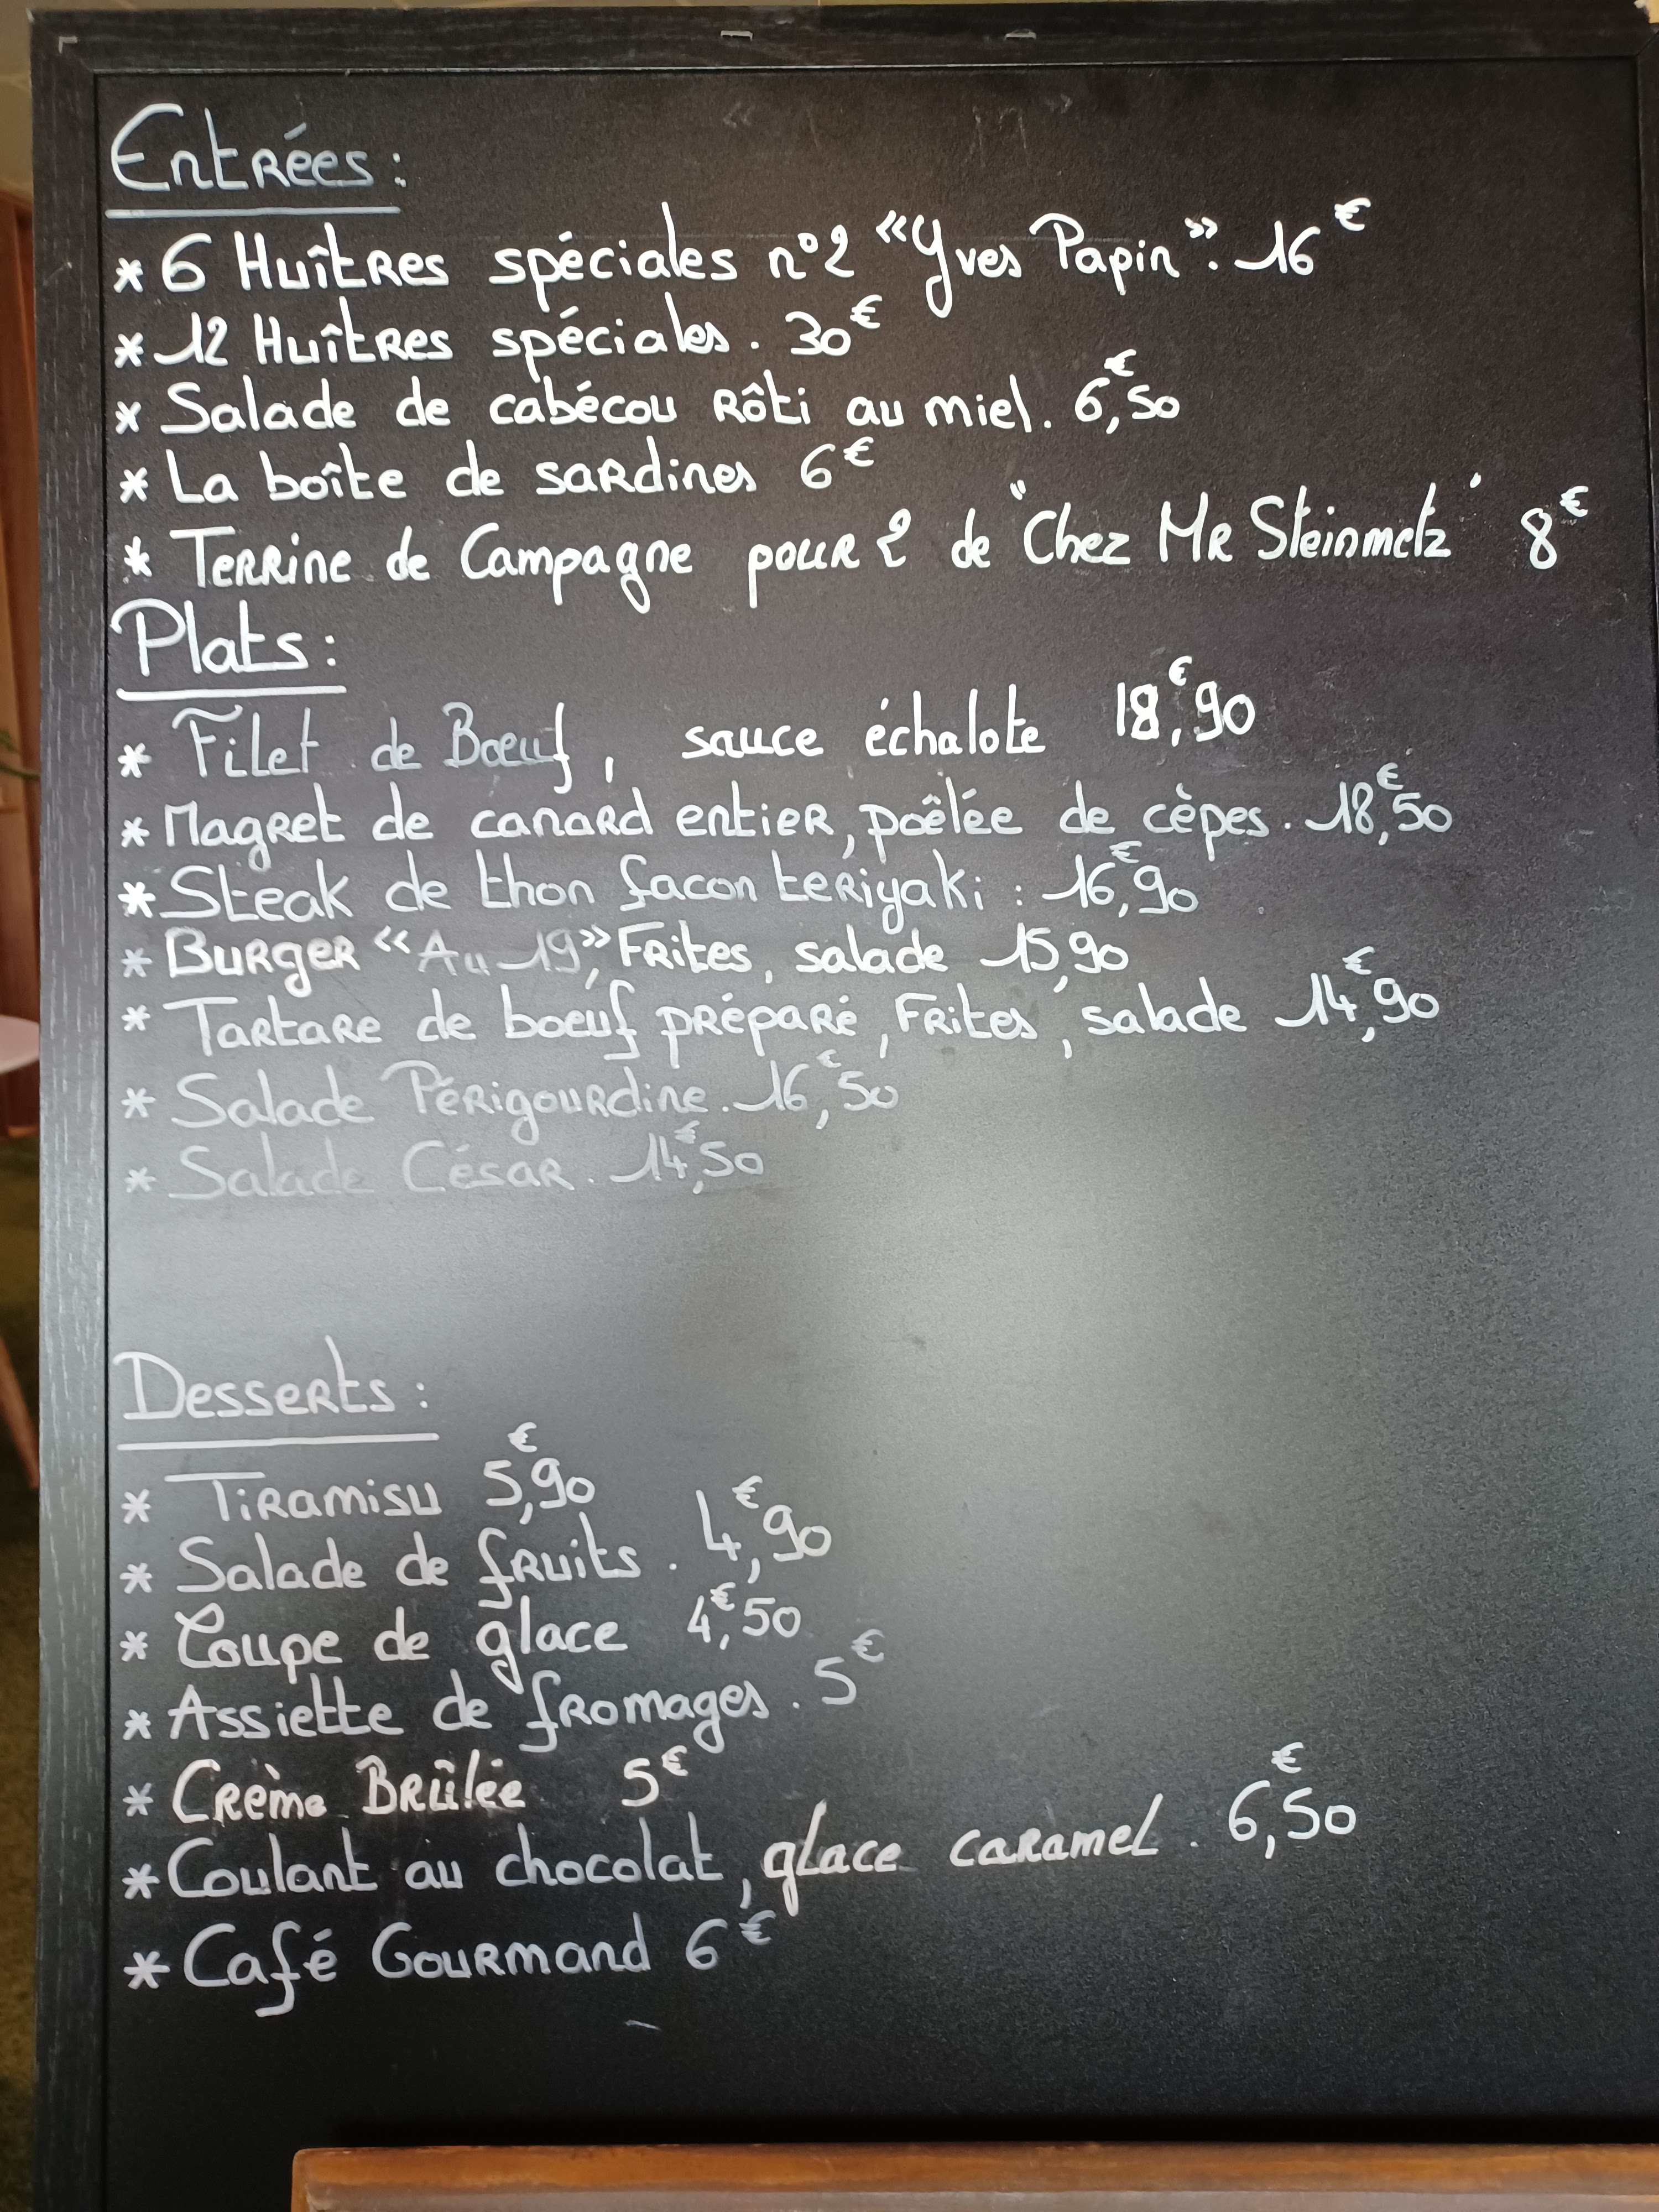 Entrées :
* 6 Huîtres spéciales n°2 «Yves Papin». 16€
* 12 Huîtres spéciales. 30€
* Salade de cabécou rôti au miel. 6,€50
* La boîte de sardines 6€
* Terrine de Campagne pour 2 de "Chez Mr Steinmetz" 8€
Plats :
* Filet de Bœuf, sauce échalote 18,€90
* Magret de canard entier, poêlée de cèpes. 18,€50
* Steak de thon facon teriyaki : 16,€90
* Burger «Au 19», Frites, salade 15,90
* Tartare de boeuf préparé, Frites, salade 14,€90
* Salade Périgourdine. 16,€50
* Salade César. 14,€50
Desserts :
* Tiramisu 5,€90
* Salade de fruits. 4,€90
* Coupe de glace 4,€50
* Assiette de fromages. 5€
* Crème Brûlée 5€
* Coulant au chocolat, glace caramel. 6,€50
* Café Gourmand 6€